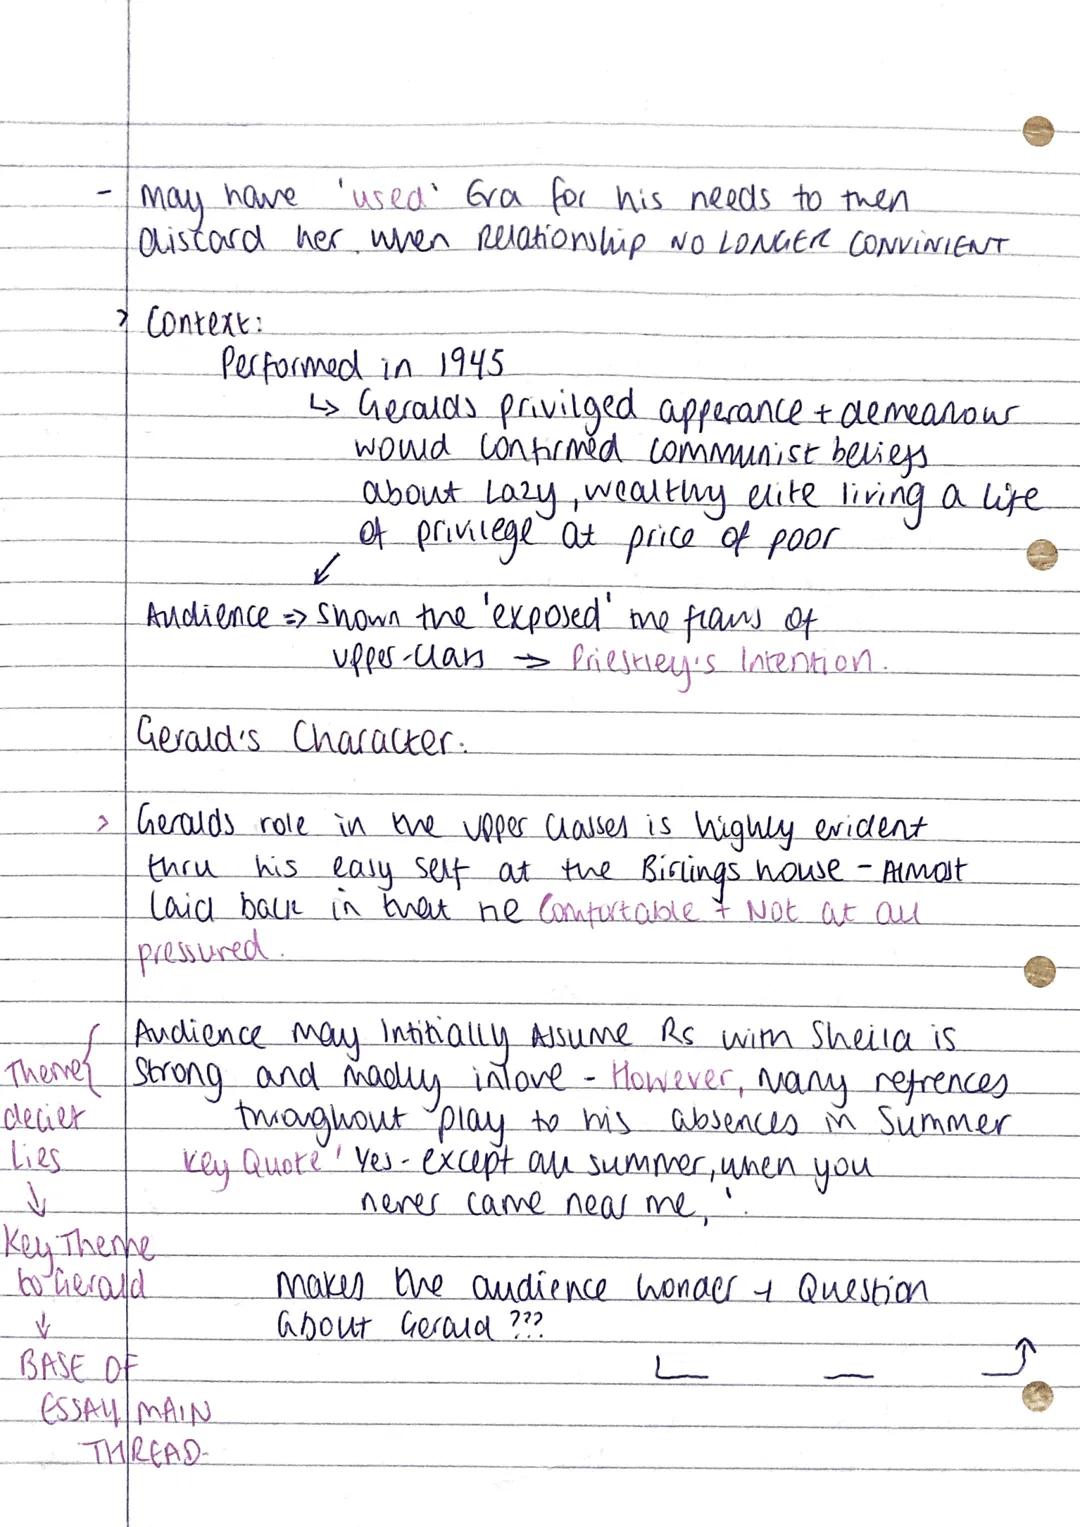 - may have 'used' Eva for his needs to then
discard her when Relationship NO LONGER CONVINIENT
> Context:
Performed in 1945
↳ Geralds privilged apperance + demeanour
would confirmed communist beliefs
about Lazy, wealthy elite living a life
of privilege at price of poor
↙
Audience => Shown the 'exposed' the flaws of
upper-class → Priestley's Intention.
Gerald's Character:
> Geralds role in the upper classes is highly evident
thru his easy self at the Birlings house - Almost
laid back in that he Comfortable + Not at all
pressured.
Audience may Intitially Assume Rs with Sheila is
Theme { Strong and madly inlove - However, Many refrences
deciet throughout play to his absences in Summer
Lies Key Quote ' Yes - except all summer, when you
↓ never came near me, '.
Key Theme
to Gerald makes the audience wonder + Question
↓ about Gerald ???
BASE OF
ESSAY MAIN
THREAD-